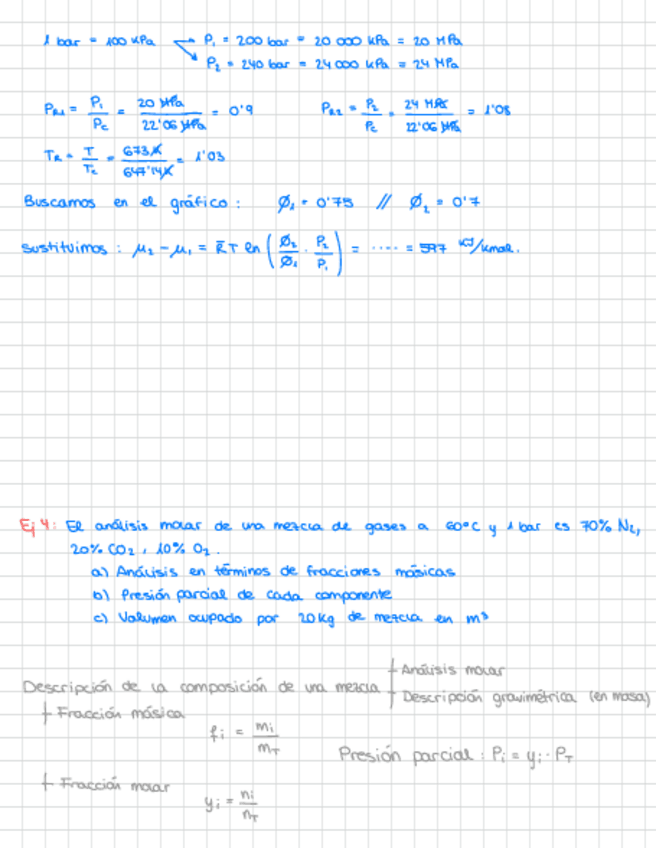 1 bar = 100 kPa P₁ = 200 bar = 20 000 kPa = 20 MPa
P₂ = 240 bar = 24 000 kPa = 24 MPa
P_R1 = P₁/P_c = 20 MPa/22'06 MPa = 0'9 P_R2 = P₂/P_c = 24 MPa/22'06 MPa = 1'08
T_R = T/T_c = 673 K/647'14 K = 1'03
Buscamos en el gráfico : Ø₁ = 0'75 // Ø₂ = 0'7
Sustituimos : μ₂ - μ₁ = R̄ T ln (Ø₂/Ø₁ · P₂/P₁) = ···· = 597 KJ/kmol.
Ej 4: El análisis molar de una mezcla de gases a 60°C y 1 bar es 70% N₂,
20% CO₂, 10% O₂.
a) Análisis en términos de fracciones másicas
b) Presión parcial de cada componente
c) Volumen ocupado por 20 kg de mezcla en m³
Descripción de la composición de una mezcla
Análisis molar
Descripción gravimétrica (en masa)
Fracción másica
f_i = m_i/m_T
Presión parcial : P_i = y_i · P_T
Fracción molar
y_i = n_i/n_T